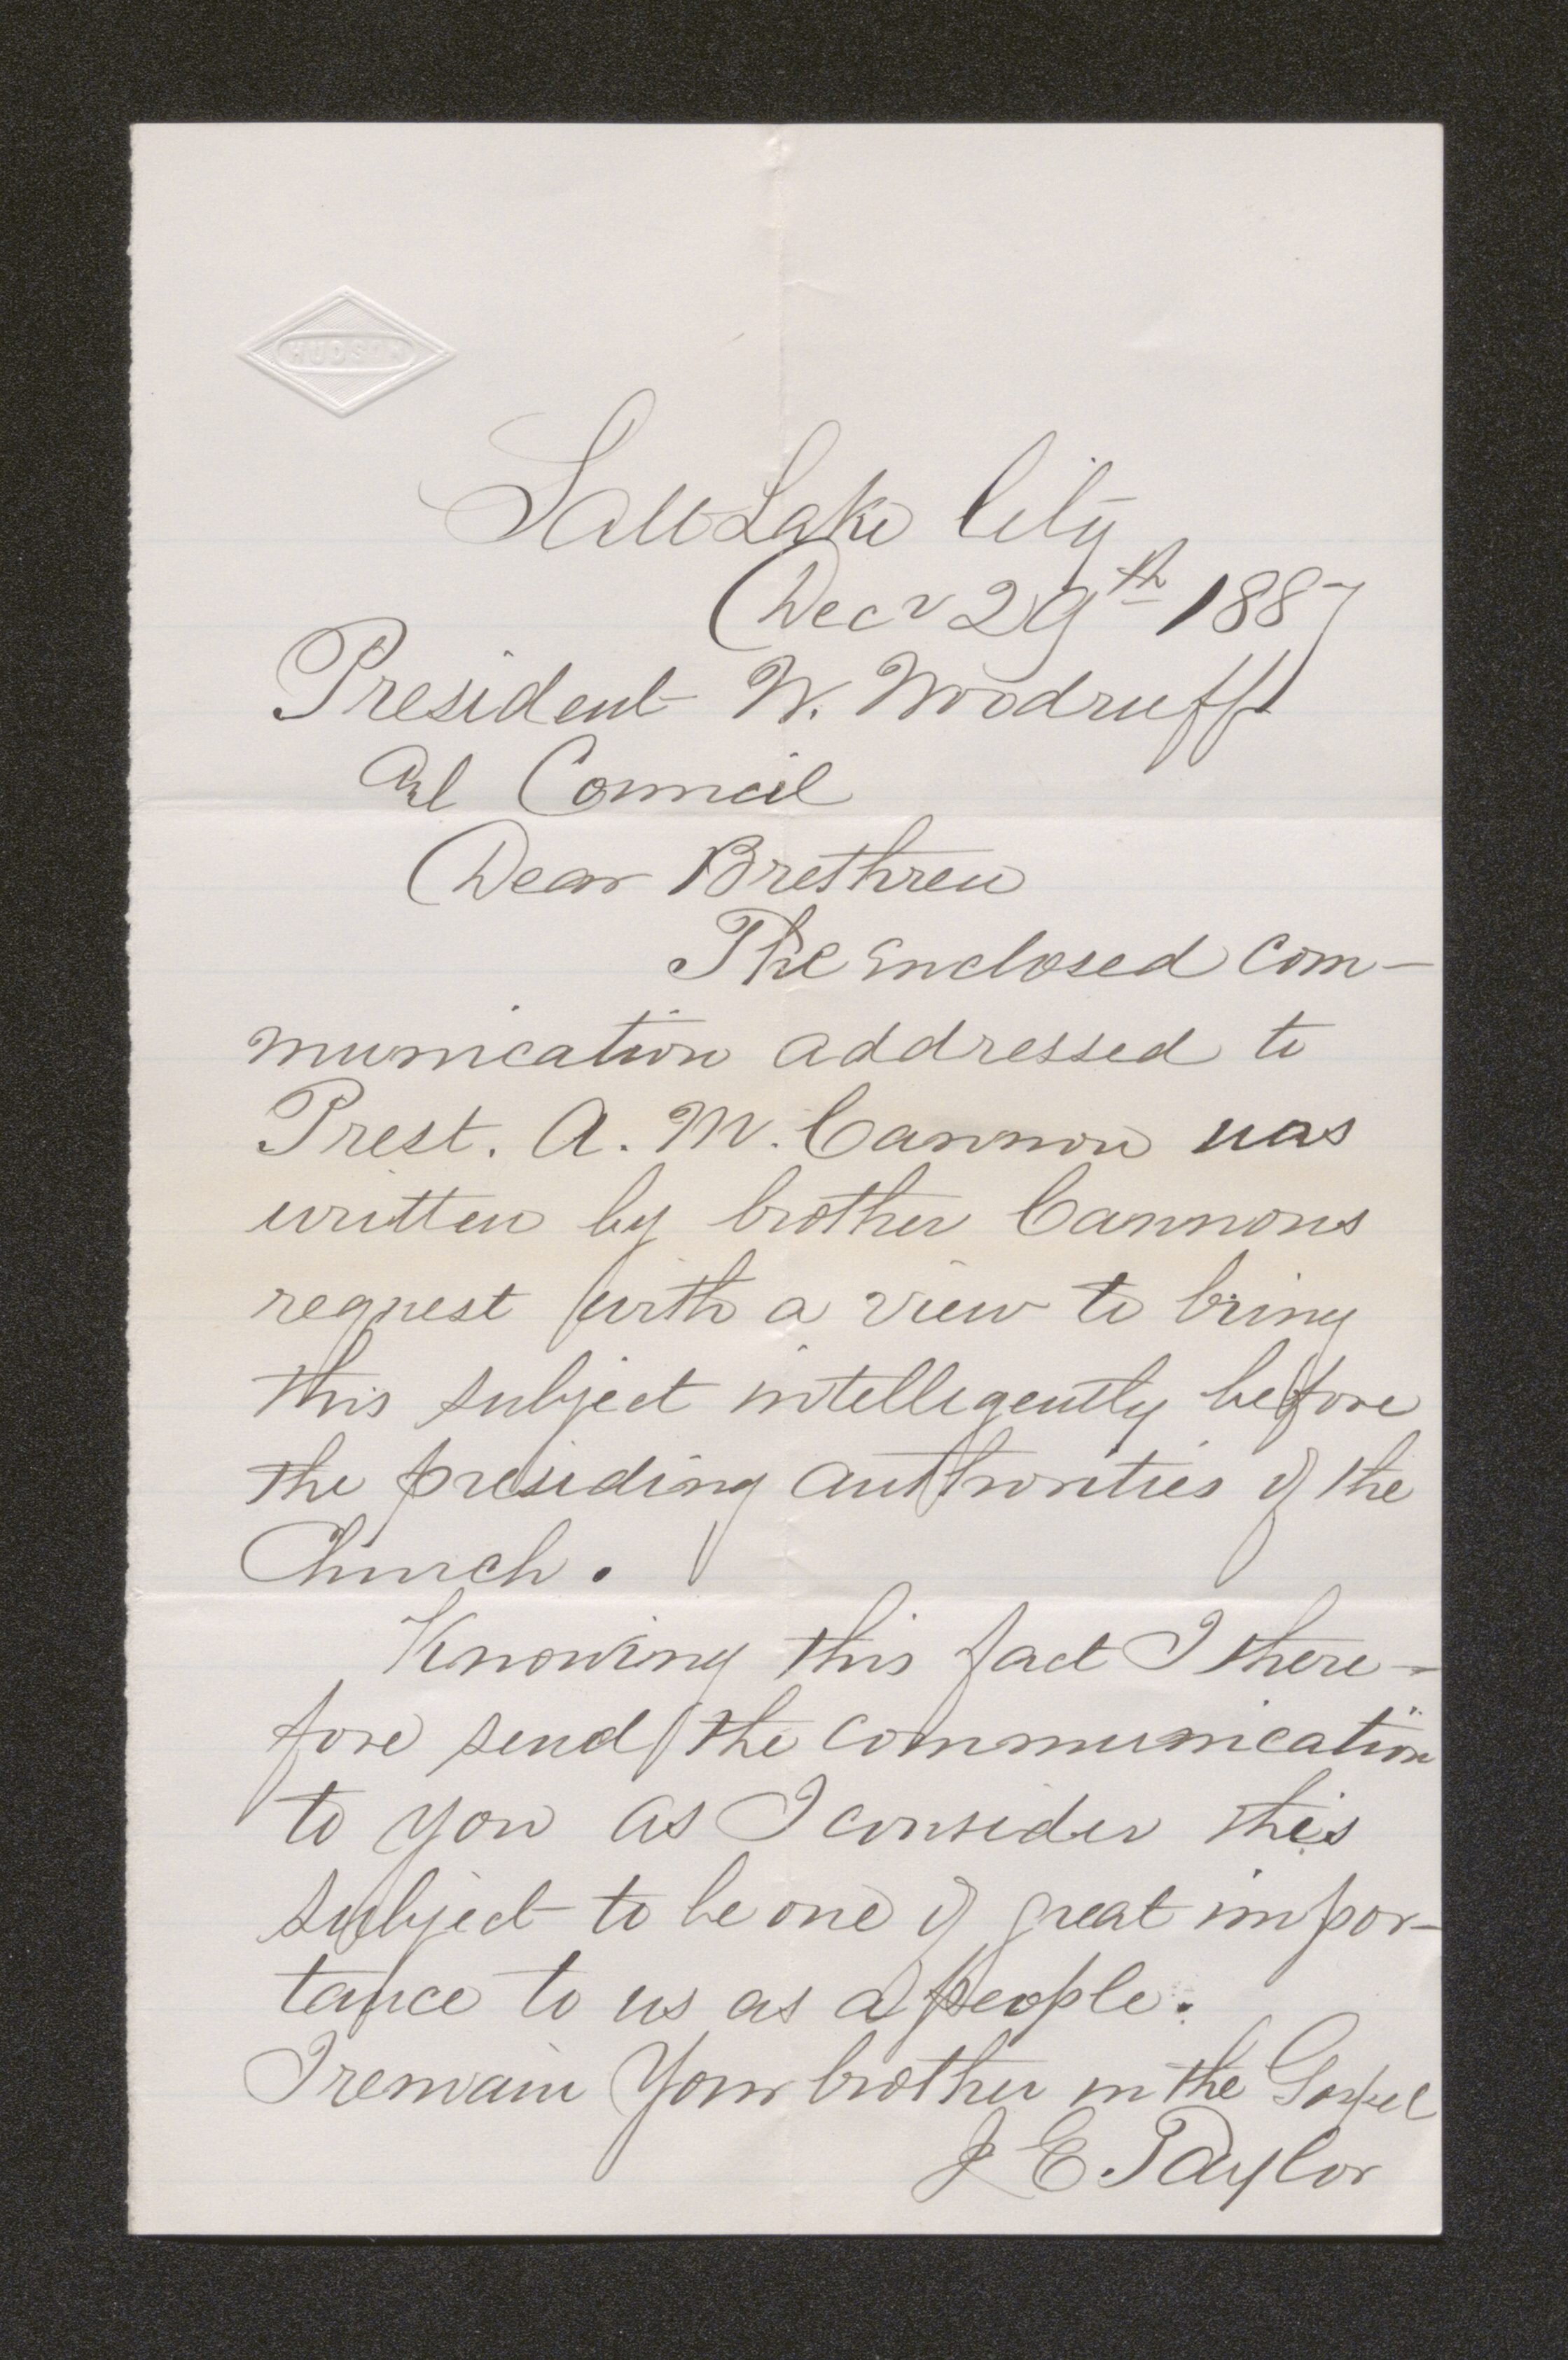 HUDSON
Salt Lake City
Decr 29th 1887
President W. Woodruff
and Council
Dear Brethren
The enclosed com-
munication addressed to
Prest. A. M. Cannon was
written by brother Cannons
request with a view to bring
this subject intelligently before
the presiding authorities of the
Church.
Knowing this fact I there-
fore send the communication
to you as I consider this
subject to be one of great impor-
tance to us as a people.
I remain Your brother in the Gospel
J E Taylor